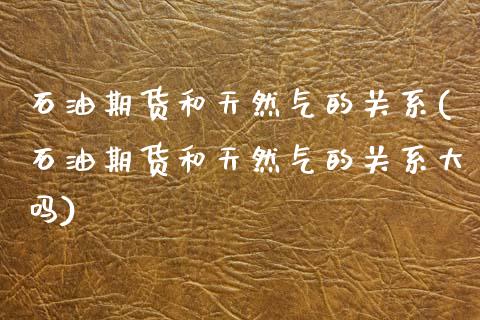 石油期货和天然气的关系(
石油期货和天然气的关系大
吗)